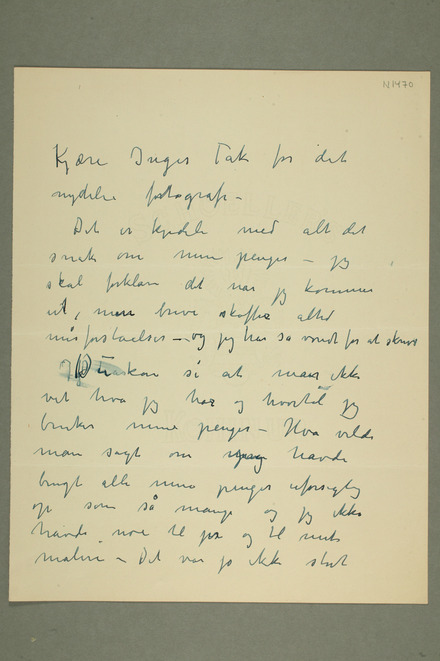 N1470
Kjære Inger Tak for det
nydelie fotografi –
Det er kjedeli med alt det
snak om mine penger – jeg
skal forklare det når jeg kommer
ut, men breve skaffer altid
misforståelser – og jeg har så vondt for at skrive
Du kan si at man ikke
vet hva jeg har og hvortil jeg
bruker mine penger – Hva vilde
man sagt om jeg havde
brugt alle mine penger uforsigtig
op som så mange og jeg ikke
havde noe til og til mit
maleri – Det var jo ikke stort